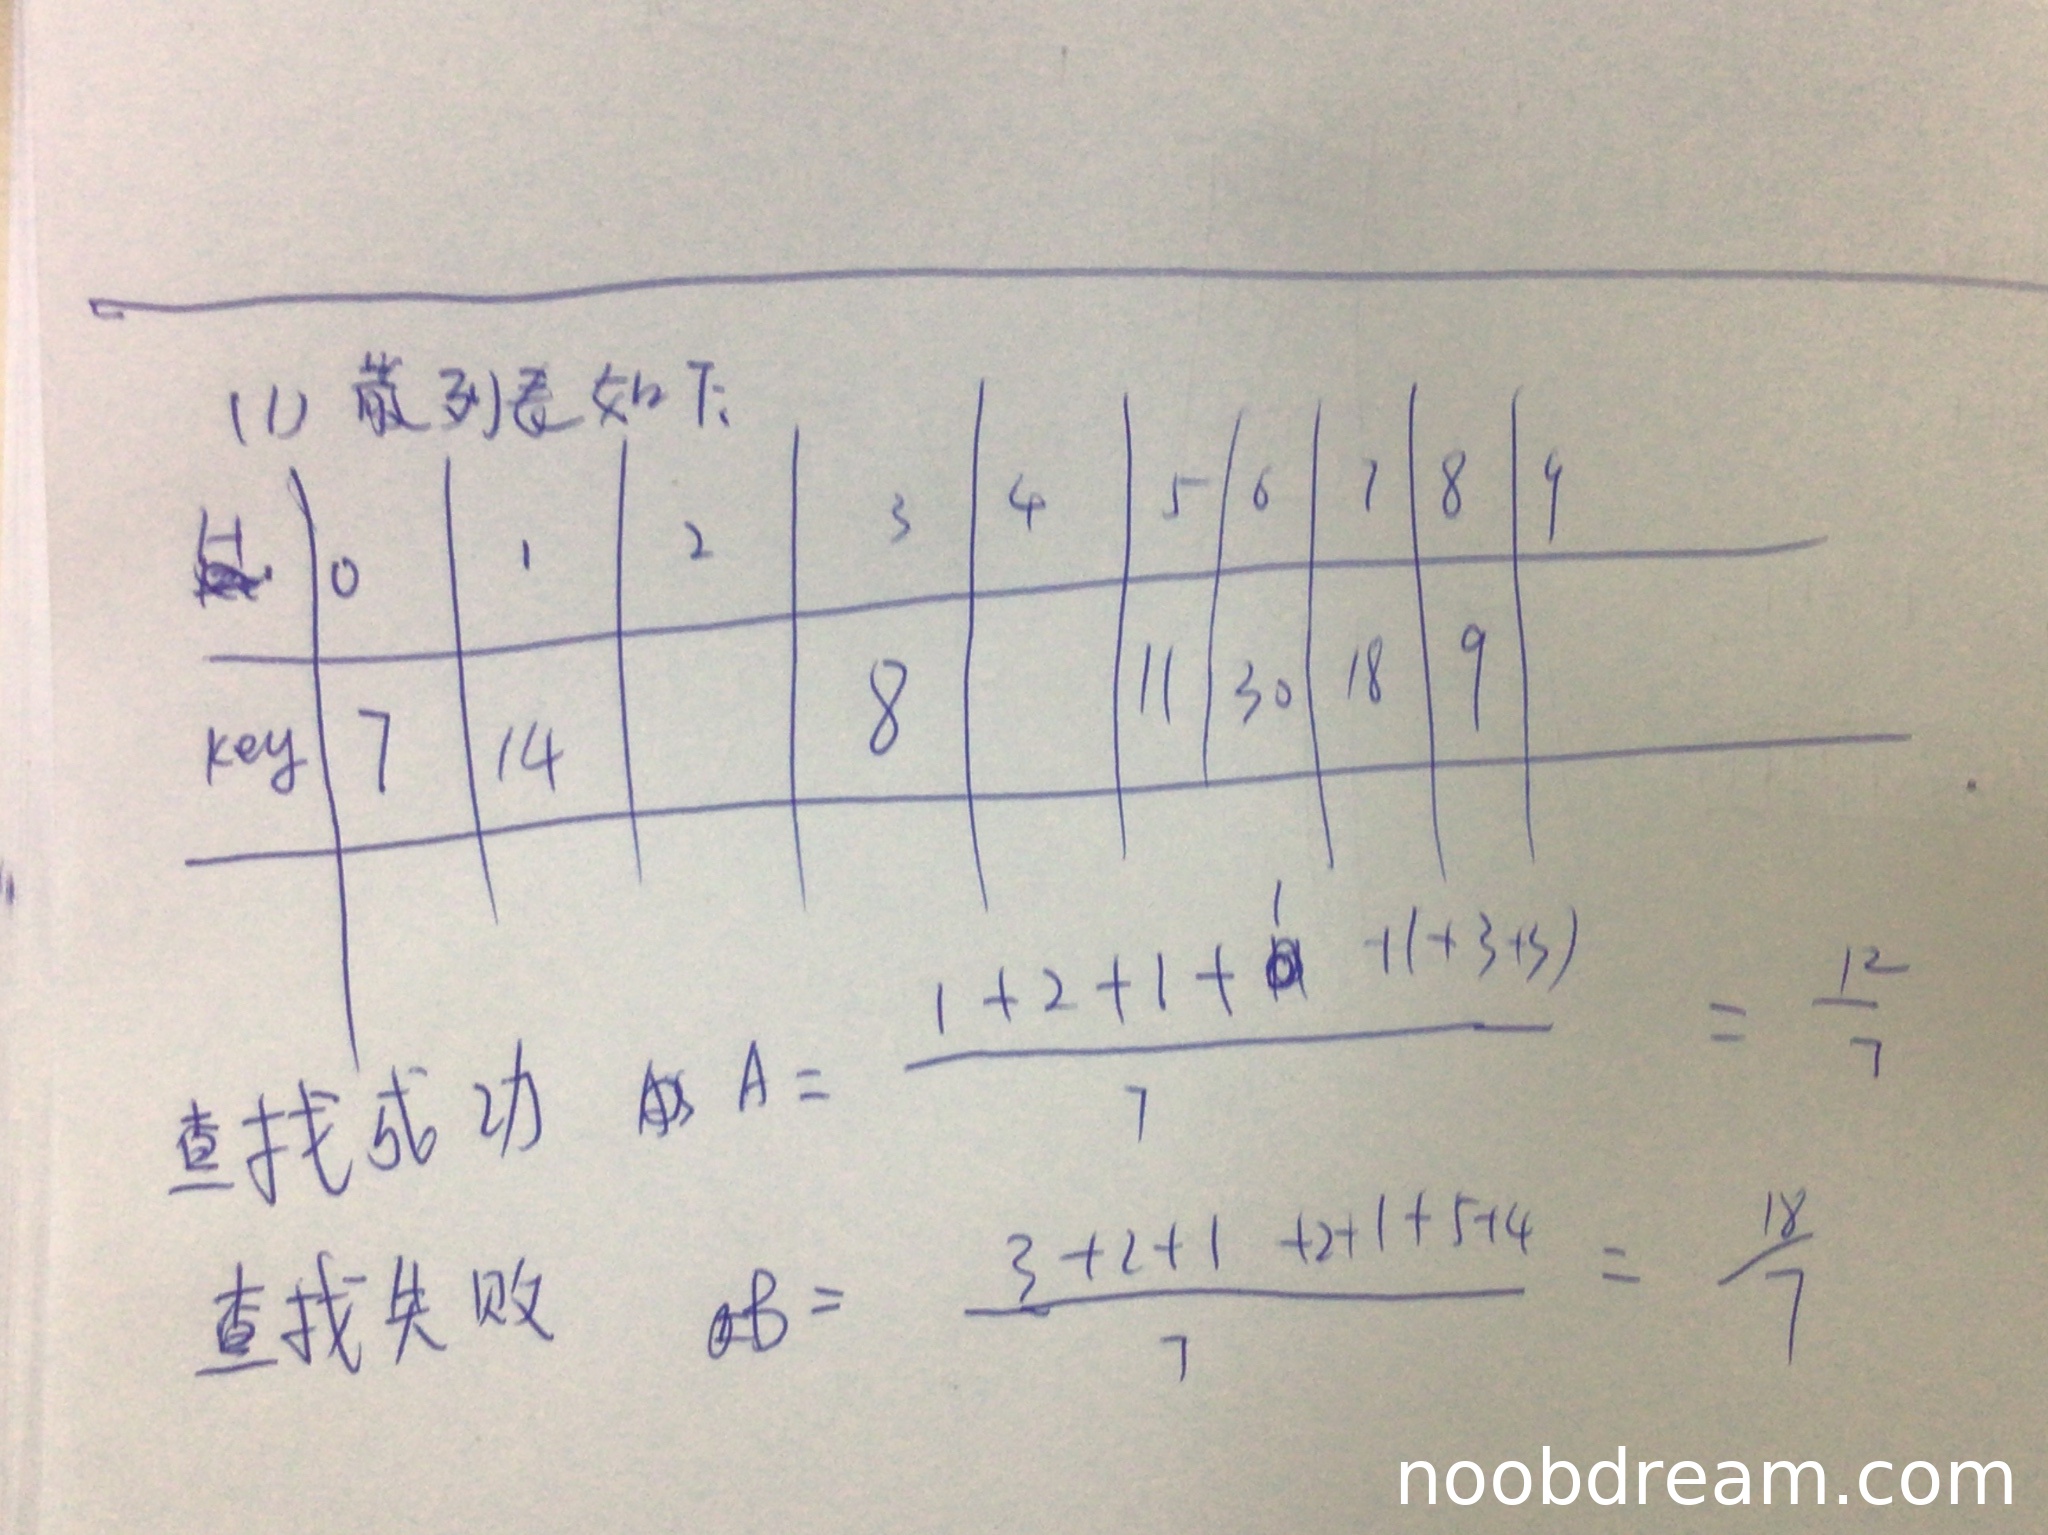 (1) 散列表如下:
H 0 1 2 3 4 5 6 7 8 9
key 7 14 8 11 30 18 9
查找成功 A = (1+2+1+1+1+3+3)/7 = 12/7
查找失败 B = (3+2+1+2+1+5+4)/7 = 18/7
noobdream.com